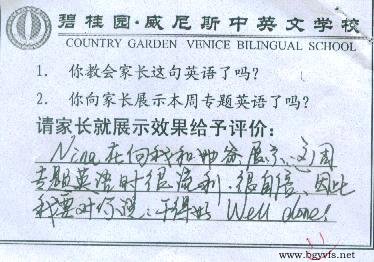 碧桂园·威尼斯中英文学校
COUNTRY GARDEN VENICE BILINGUAL SCHOOL
1. 你教会家长这句英语了吗?
2. 你向家长展示本周专题英语了吗?
请家长就展示效果给予评价:
Nina在向我和她爸展示这周
专题英语时很流利、很自信、因此
我要对你说:干得好 Well done!
www.bgyvfs.net